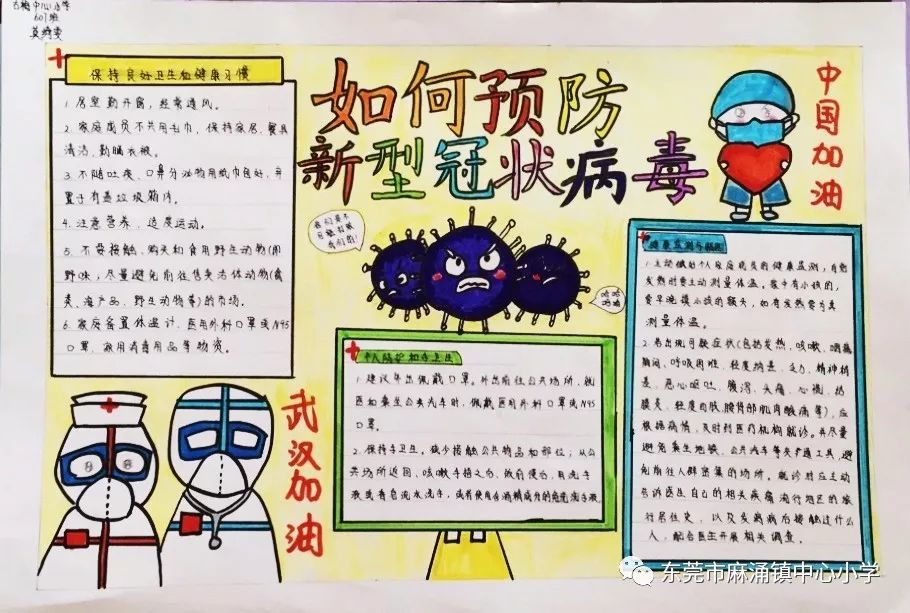 古梅中心小学
601班
莫绮雯
如何预防
新型冠状病毒
中国加油
武汉加油
保持良好卫生和健康习惯
1. 居室勤开窗，经常通风。
2. 家庭成员不共用毛巾，保持家居、餐具
清洁，勤晒衣被。
3. 不随吐痰，口鼻分泌物用纸巾包好，弃
置于有盖垃圾箱内。
4. 注意营养，适度运动。
5. 不要接触、购买和食用野生动物(即
野味)，尽量避免前往售卖活体动物(禽
类、海产品、野生动物等)的市场。
6. 家庭备置体温计、医用外科口罩或N95
口罩、家用消毒用品等物资。
个人防护和手卫生
1. 建议外出佩戴口罩。外出前往公共场所、就
医和乘坐公共汽车时，佩戴医用外科口罩或N95
口罩。
2. 保持手卫生。减少接触公共物品和部位；从公
共场所返回、咳嗽手捂之后、饭前便后，用洗手
液或香皂流水洗手，或者使用含酒精成分的免洗洗手液
健康监测与就医
1. 主动做好个人与家庭成员的健康监测，自觉
发热时要主动测量体温。家中有小孩的，
要早晚摸小孩的额头，如有发热要为其
测量体温。
2. 若出现可疑症状(包括发热、咳嗽、咽痛、
胸闷、呼吸困难、轻度纳差、乏力、精神稍
差、恶心呕吐、腹泻、头痛、心慌、结
膜炎、轻度四肢、腰背部肌肉酸痛等)，应
根据病情，及时到医疗机构就诊。并尽量
避免乘坐地铁、公共汽车等交通工具，避
免前往人群密集的场所。就诊时应主动
告诉医生自己的相关疾病流行地区的旅
行居住史，以及发病后接触过什么
人，配合医生开展相关调查。
东莞市麻涌镇中心小学